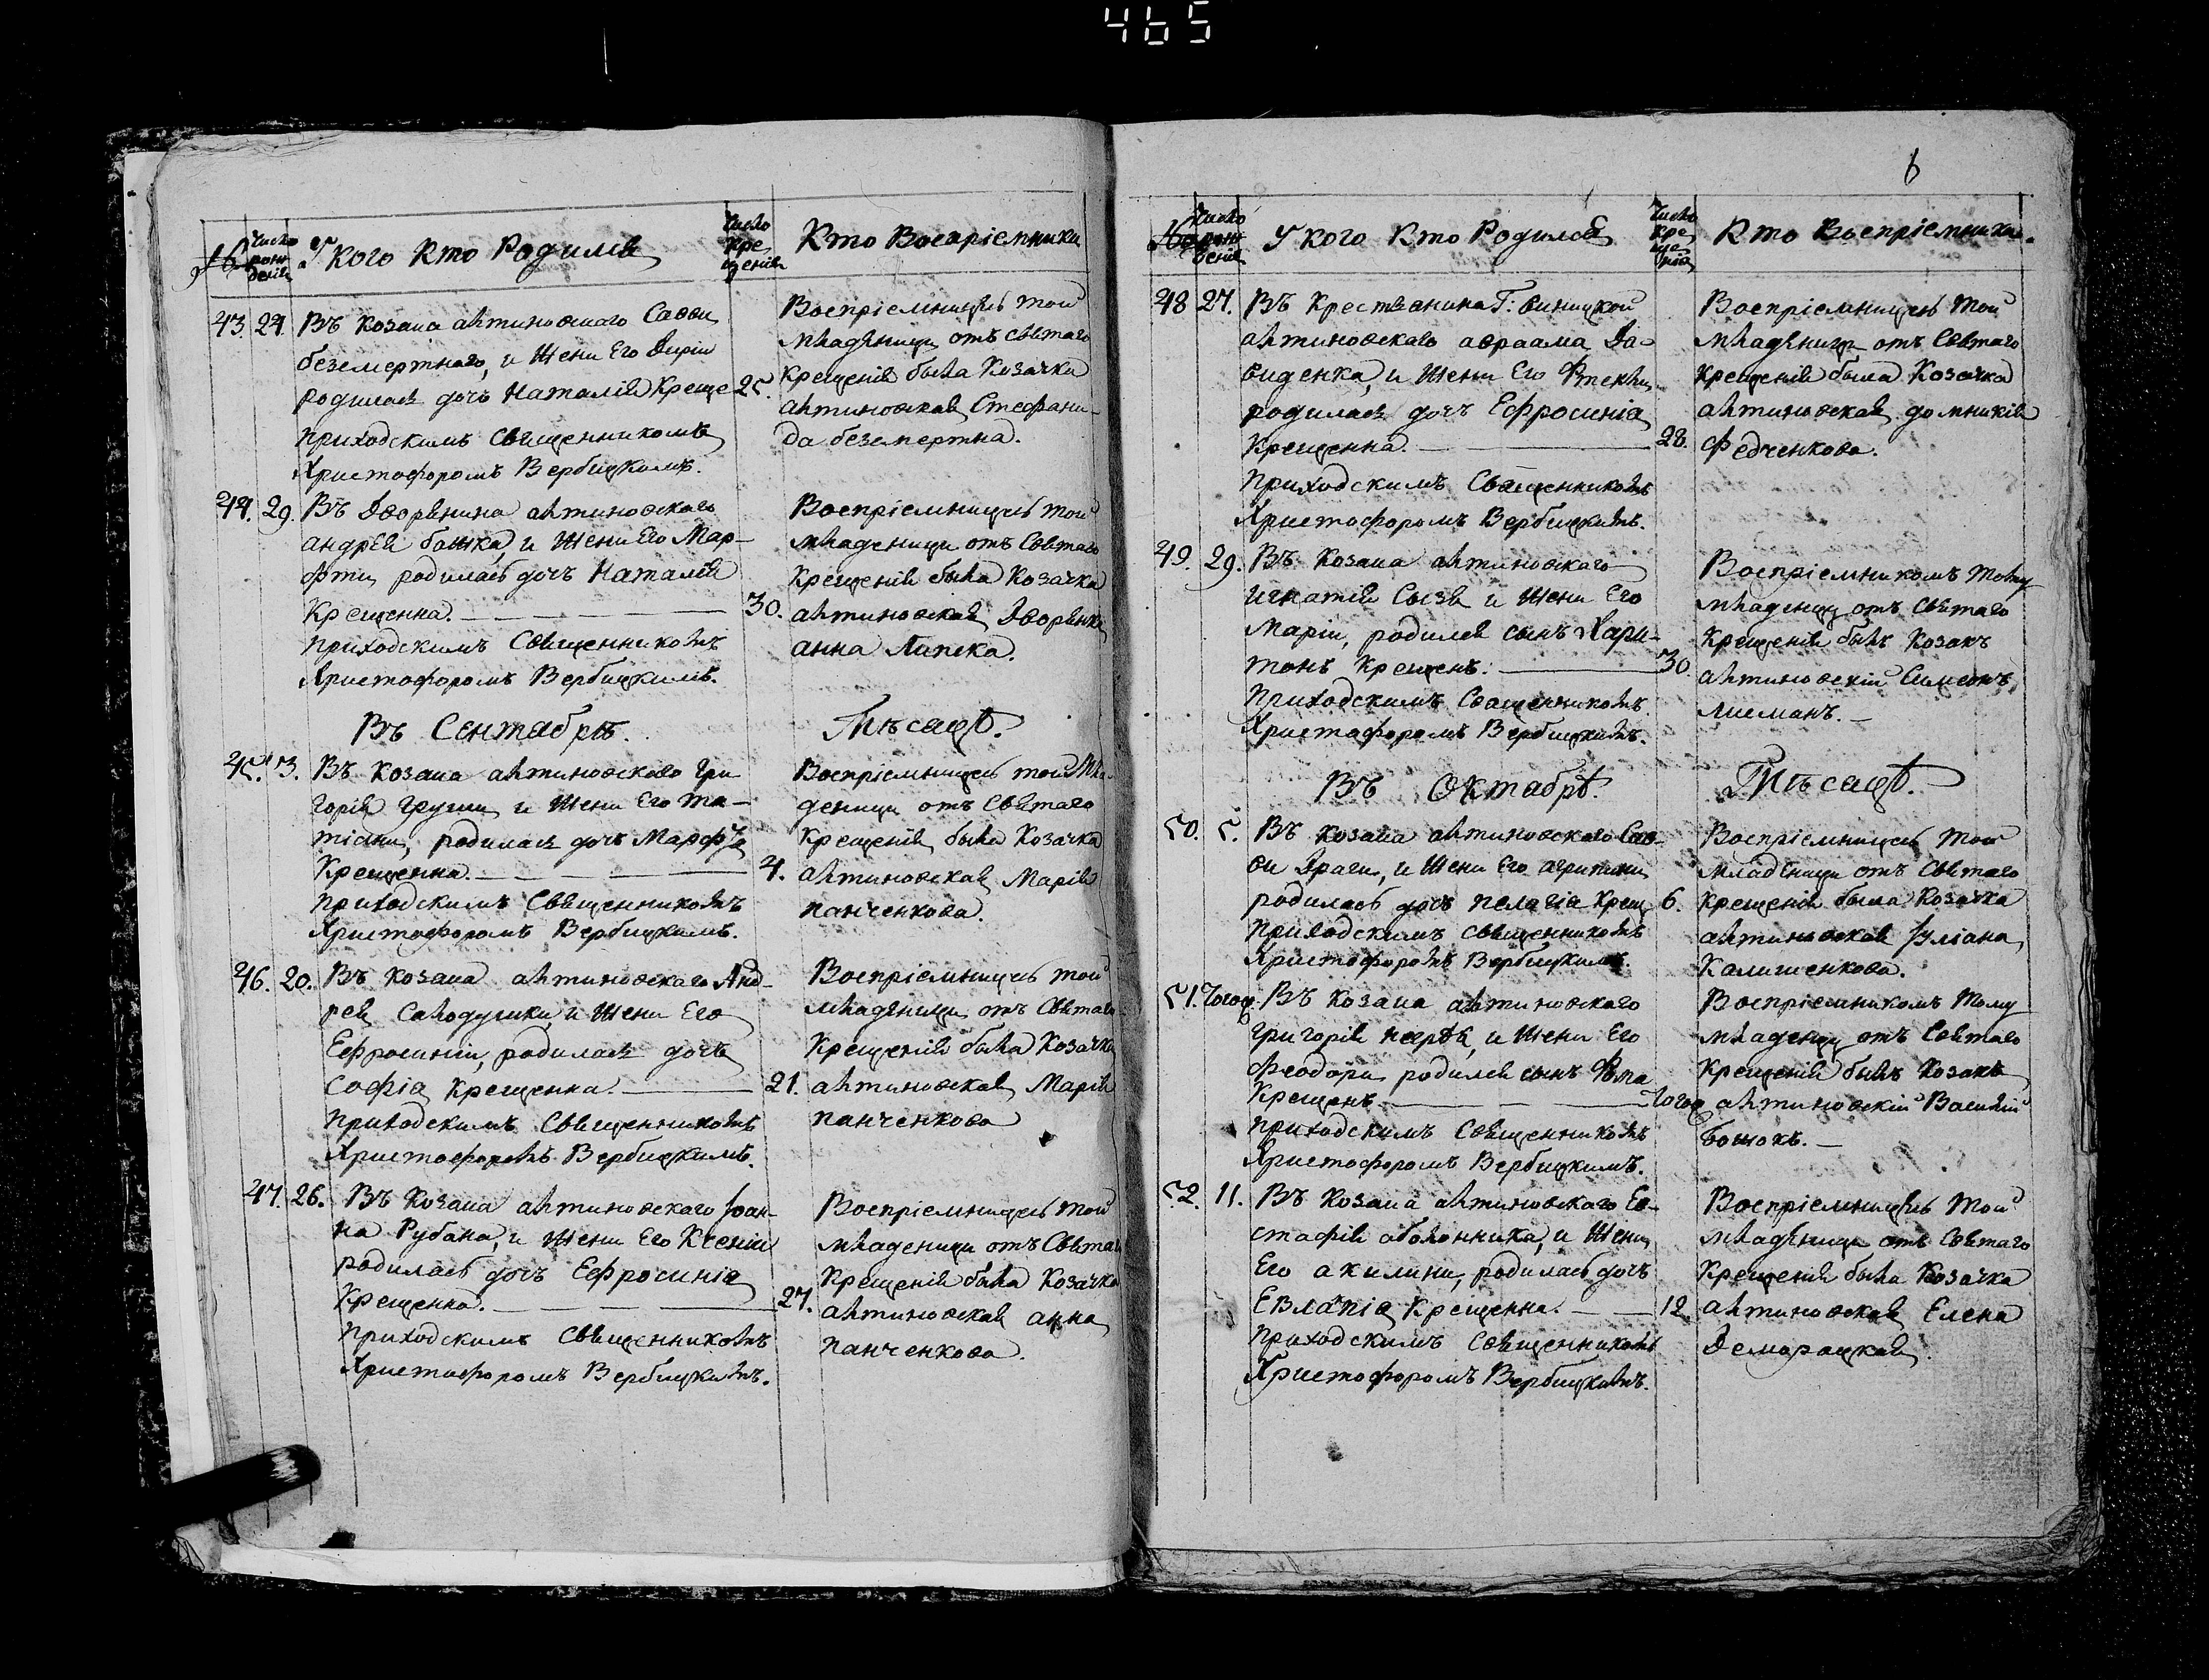 465
№
Число рождения
У кого Кто Родился
Число крещения
Кто Восприемники
43. 24. Въ Козака алтиновского Савви
безсмертного, и жени Его Дарии
родилась дочь Наталия Креще 25.
приходскимъ Священникомъ
Христофоромъ Вербицкимъ.
Восприемницею той
младеници отъ святаго
крещения была Козачка
алтиновская Стефани-
да безсмертна.
44. 29. Въ Дворянина алтиновскаго
андрея божка, и жени Его Мар-
фти родилась дочь Наталия
Крещенна. 30.
приходскимъ Священникомъ
Христофоромъ Вербицкимъ.
Восприемницею той
младеници отъ Святаго
Крещения была Козачка
алтиновская Дворянка
анна Лапска.
Въ Сентябрѣ. Мѣсяцѣ.
45. 3. Въ Козака алтиновского Гри
гория Груши и жени Его та-
тіани, родилась дочь Марфа
Крещенна. 4.
приходскимъ Священникомъ
Христофоромъ Вербицкимъ.
Восприемницею той мла
деници отъ Святаго
Крещения была Козачка
алтиновская Мария
панченкова.
46. 20. Въ Козака алтиновского Анд-
рея Солодушки, и жени Его
Ефросинии, родилась дочь
София Крещенна. 21.
приходскимъ Священникомъ
Христофоромъ Вербицкимъ.
Восприемницею той
младеници отъ Святаго
Крещения была Козачка
алтиновская Мария
панченкова
47. 26. Въ Козака алтиновского Іоан-
на Рубана, и жени Его Ксении
родилась дочь Ефросиния
Крещенна. 27.
приходскимъ Священникомъ
Христофоромъ Вербицкимъ.
Восприемницею той
младеници отъ Святаго
Крещения была Козачка
алтиновская анна
панченкова.
6
№
Число рождения
У кого Кто Родился
Число крещения
Кто Восприемники.
48 27. Въ Крестянина Г: виницкой
алтиновскаго авраама Да-
виденка, и жени Его Фтекли
родилась дочь Ефросиния
Крещенна. 28.
приходскимъ Священникомъ
Христофоромъ Вербицкимъ.
Восприемницею той
младеници отъ Святаго
крещения была Козачка
алтиновская домникия
Федченкова.
49. 29. Въ Козака алтиновскаго
игнатия Сызя и жени Его
Марии, родился сынъ Хари-
тонъ Крещенъ. 30.
приходскимъ Священникомъ
Христофоромъ Вербицкимъ.
Восприемникомъ тому
младенцу отъ Святаго
Крещения былъ Козакъ
алтиновский Симеонъ
лисманъ.
Въ Октябрѣ. Мѣсяцѣ.
50. 5. Въ Козака алтиновского Сав-
ви Драги, и жени Его агрипини
родилась дочь пелагия Крещ 6.
приходскимъ священникомъ
Христофоромъ Вербицкимъ.
Восприемницею той
младеници отъ Святаго
Крещения была Козачка
алтиновская Іуліана
Калишенкова.
51. Тогож. Въ Козака алтиновского
григория и жени Его
Феодори родился сынъ Фома
Крещенъ Тогож
приходскимъ Священникомъ
Христофоромъ Вербицкимъ.
Восприемникомъ тому
младенцу отъ Святаго
Крещения былъ Козакъ
алтиновский Василий
Божокъ.
52. 11. Въ Козака алтиновского Ев-
стафия оболонника, и жени
Его акилини, родилась дочь
Евлампия Крещенна. 12
приходскимъ Священникомъ
Христофоромъ Вербицкимъ.
Восприемницею той
младеници отъ Святаго
Крещения была Козачка
алтиновская Елена
Деморацкая.